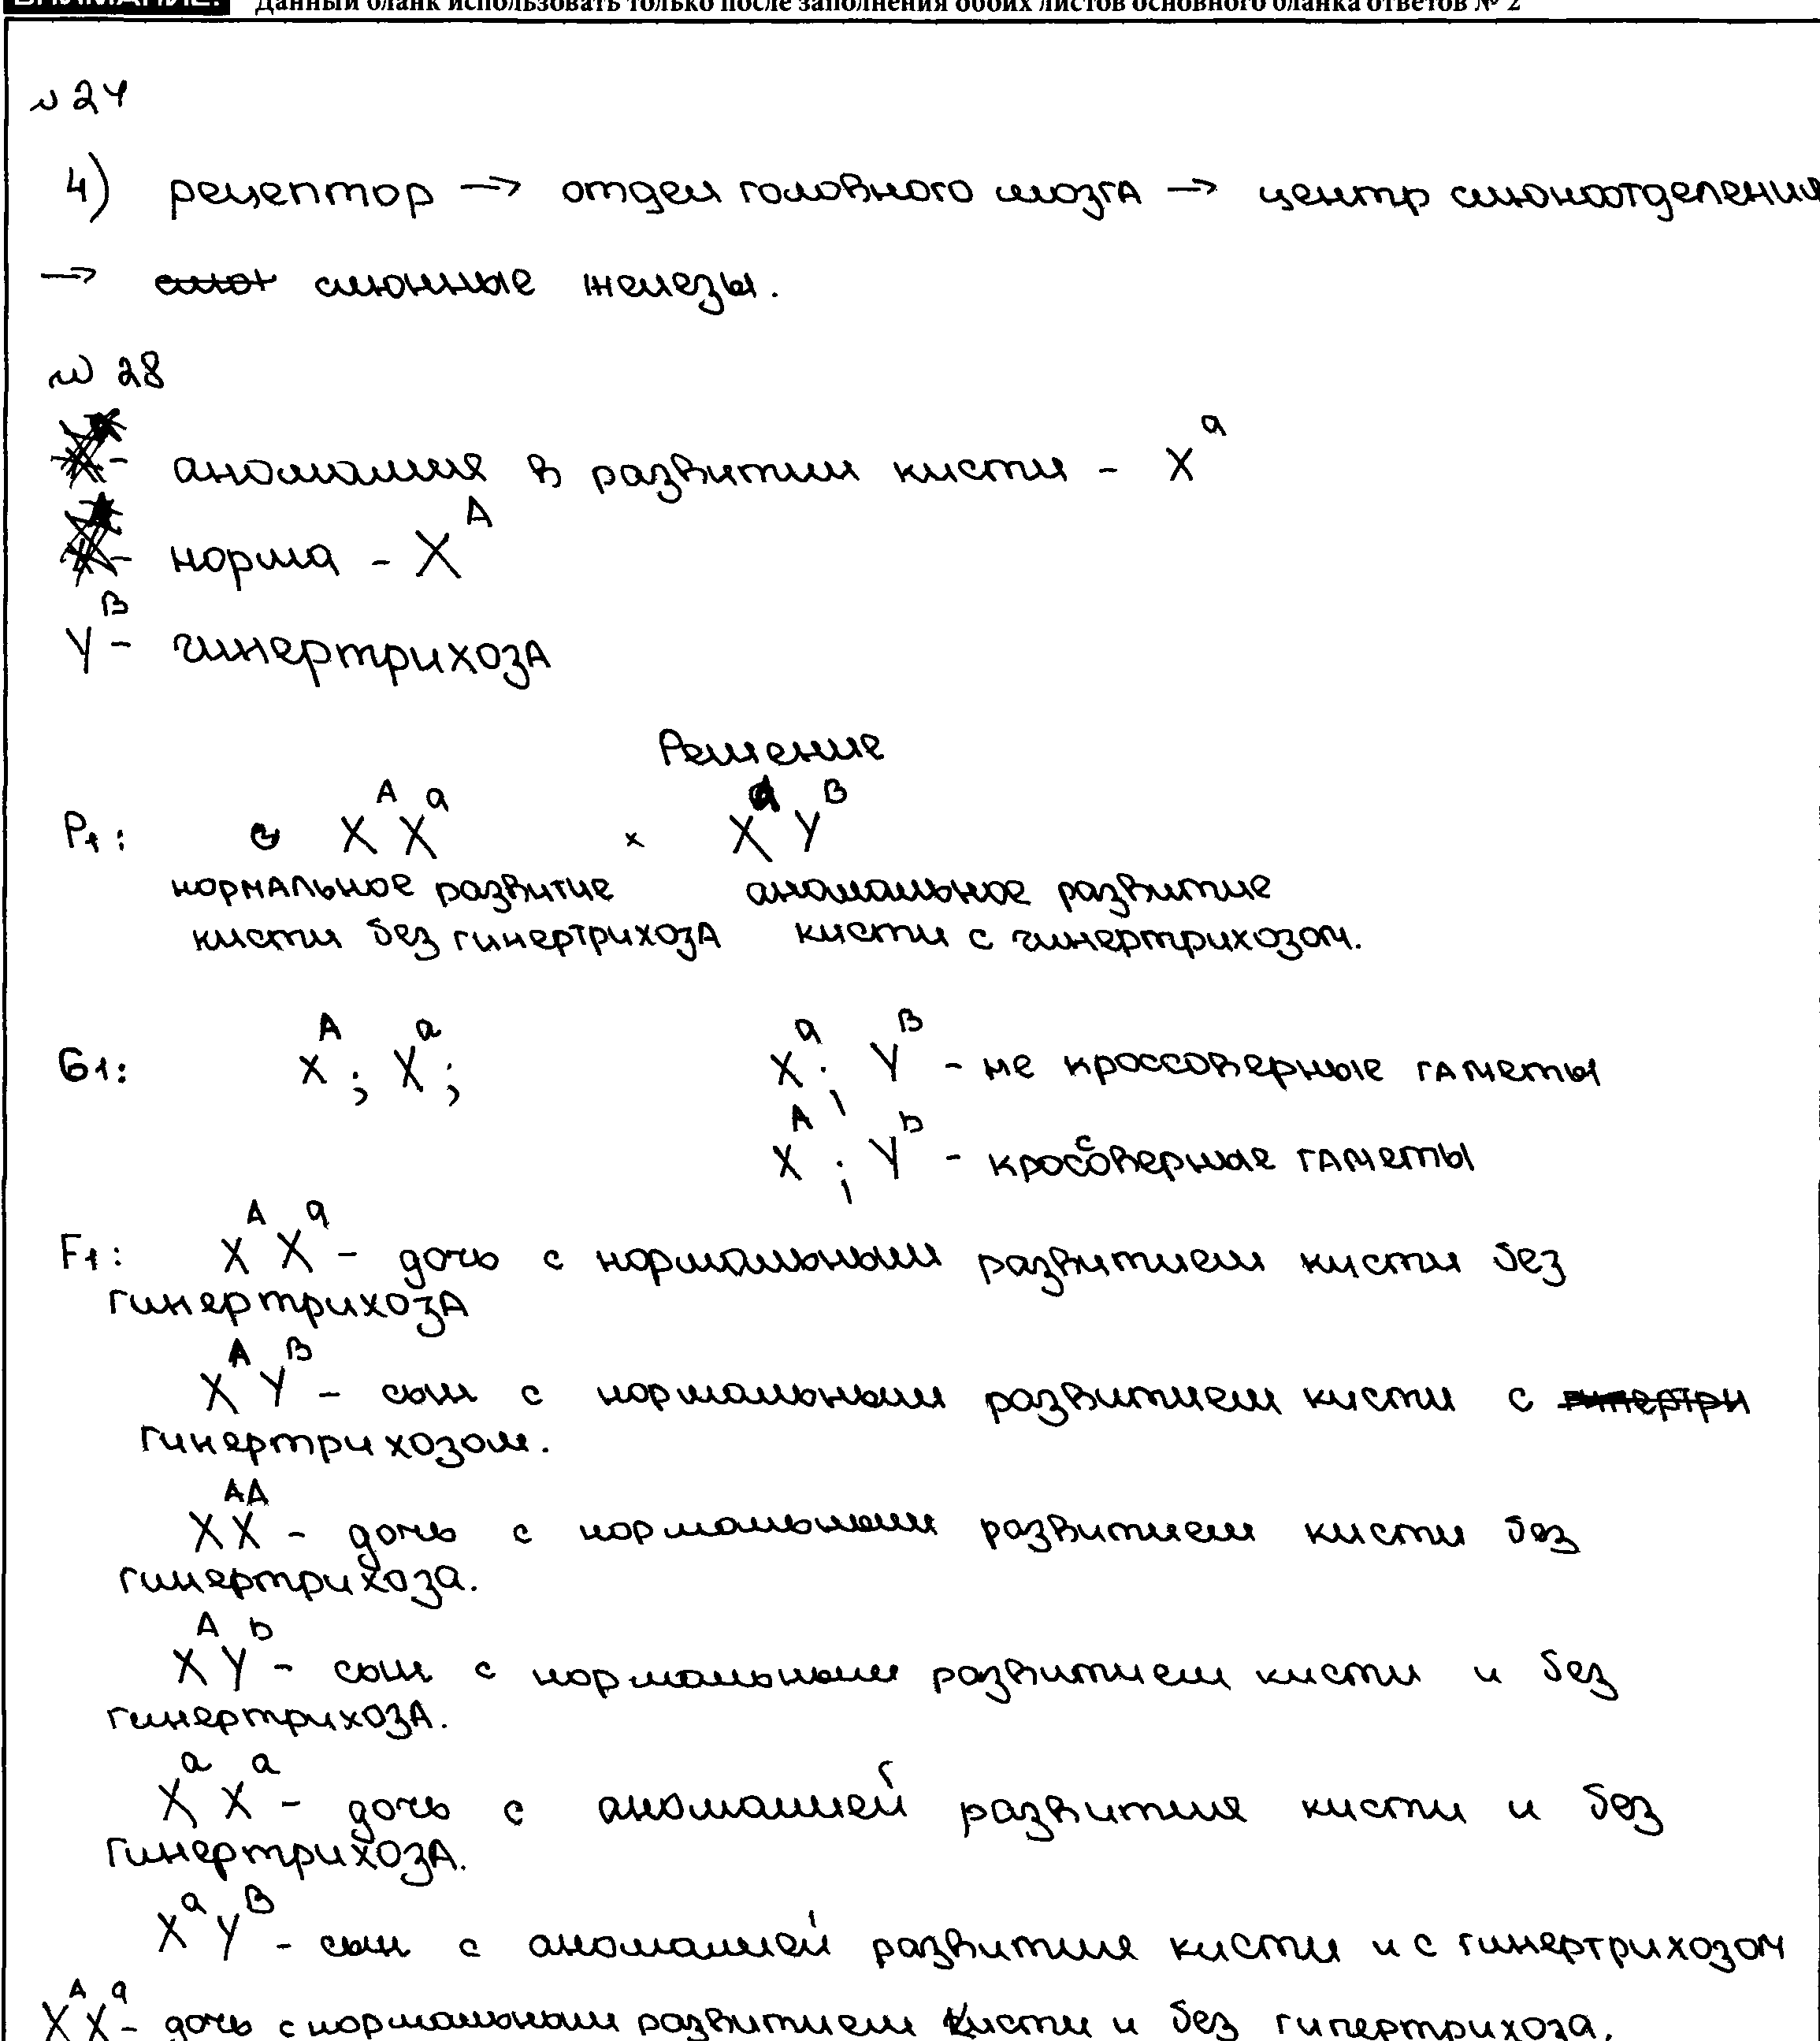 ВНИМАНИЕ! Данный бланк использовать только после заполнения обоих листов основного бланка ответов № 2
№ 24
4) рецептор → отдел головного мозга → центр слюноотделения
→ слюнные железы.
№ 28
аномалия в развитии кисти - Xᵃ
норма - Xᴬ
Yᴮ - гинертрихоза
Решение
P₁: XᴬXᵃ × XᵃYᴮ
нормальное развитие аномальное развитие
кисти без гинертрихоза кисти с гинертрихозом.
G1: Xᴬ; Xᵃ; Xᵃ; Yᴮ - не кроссоверные гаметы
Xᴬ; Yᵇ - кроссоверные гаметы
F₁: XᴬXᵃ - дочь с нормальным развитием кисти без
гинертрихоза
XᴬYᴮ - сын с нормальным развитием кисти с
гинертрихозом.
XXᴬᴬ - дочь с нормальным развитием кисти без
гинертрихоза.
XᴬYᵇ - сын с нормальным развитием кисти и без
гинертрихоза.
XᵃXᵃ - дочь с аномалией развития кисти и без
гинертрихоза.
XᵃYᴮ - сын с аномалией развития кисти и с гинертрихозом
XᴬXᵃ - дочь с нормальным развитием кисти и без гипертрихоза.